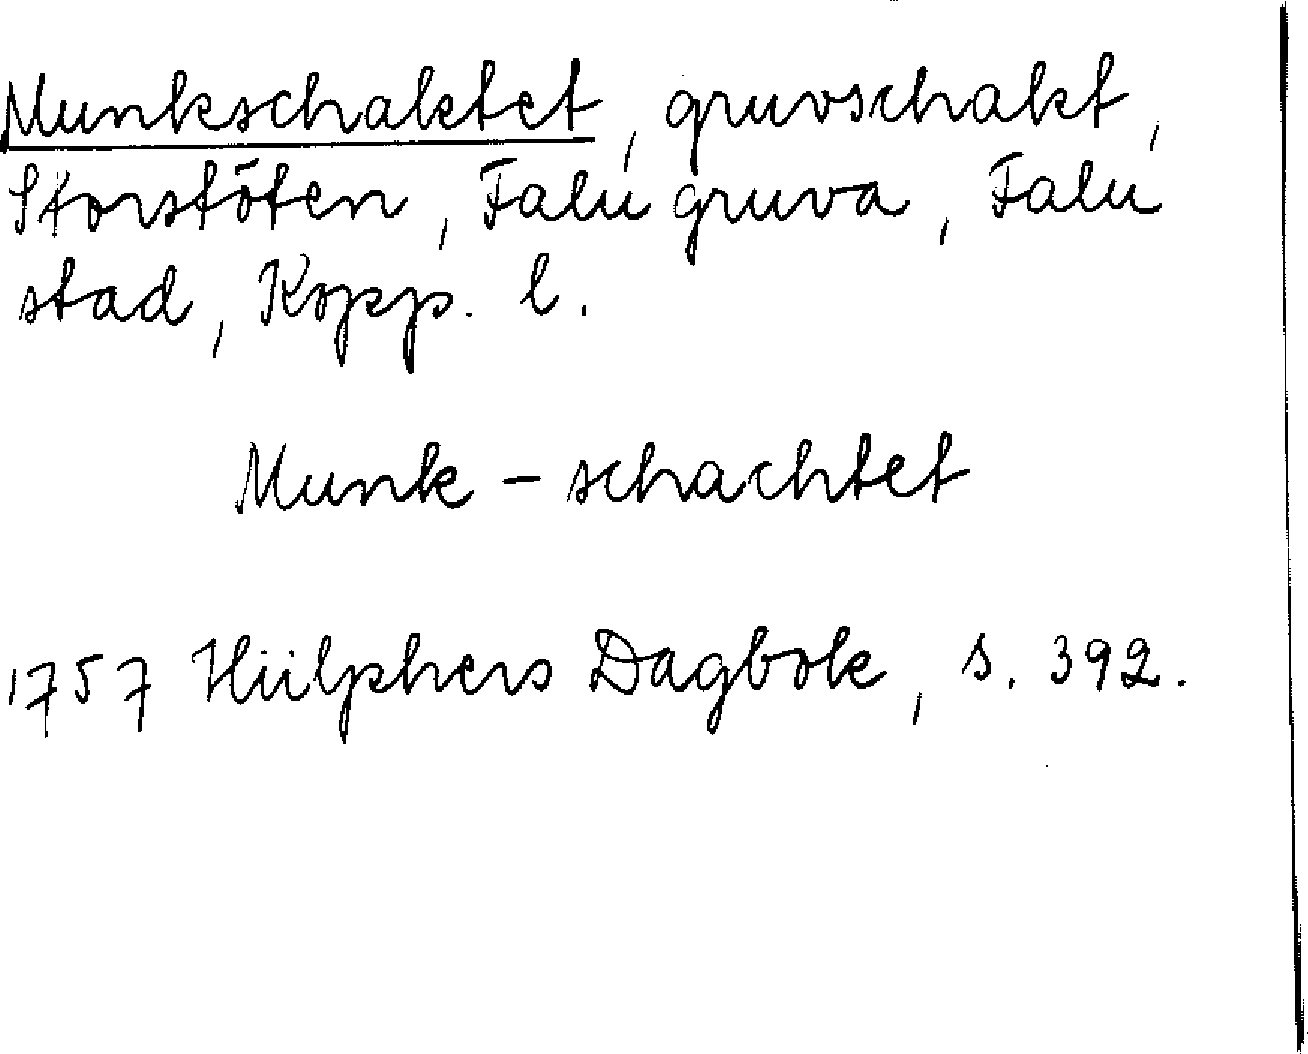 Munkschaktet, gruvschakt,
Storstöten, Falu gruva, Falu
stad, Kopp. l.
Munk - schachtet
1757 Hülphers Dagbok, s. 392.